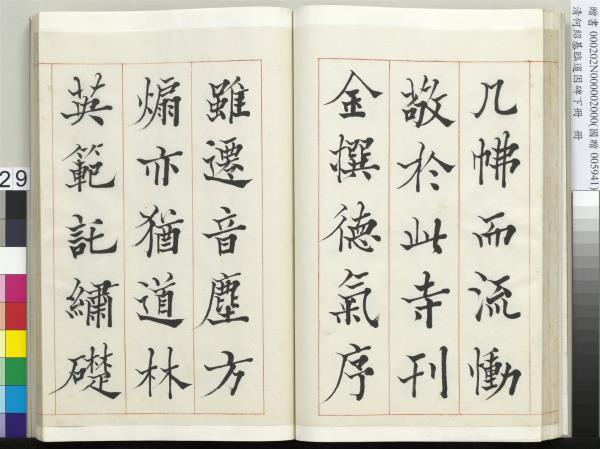 贈書 000202N000002000(國贈 005941)
清何紹基臨道因碑下冊 冊
几而流慟
敬於此寺刊
金撰德氣序
雖遷音塵方
煽亦猶道林
英範託繡礎
29